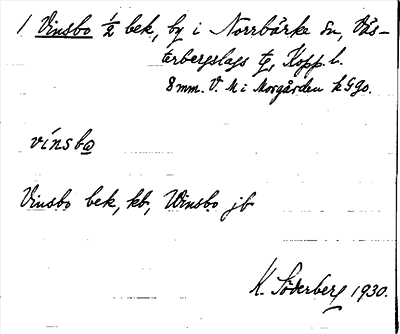 1 Vinsbo ½ bek, by i Norrbärke sn, Väs-
terbergslags tg, Kopp. l.
8 mm. V. M i Morgården k G go.
vínsbo
Vinsbo bek, kb, Winsbo jb
K. Söderberg 1930.